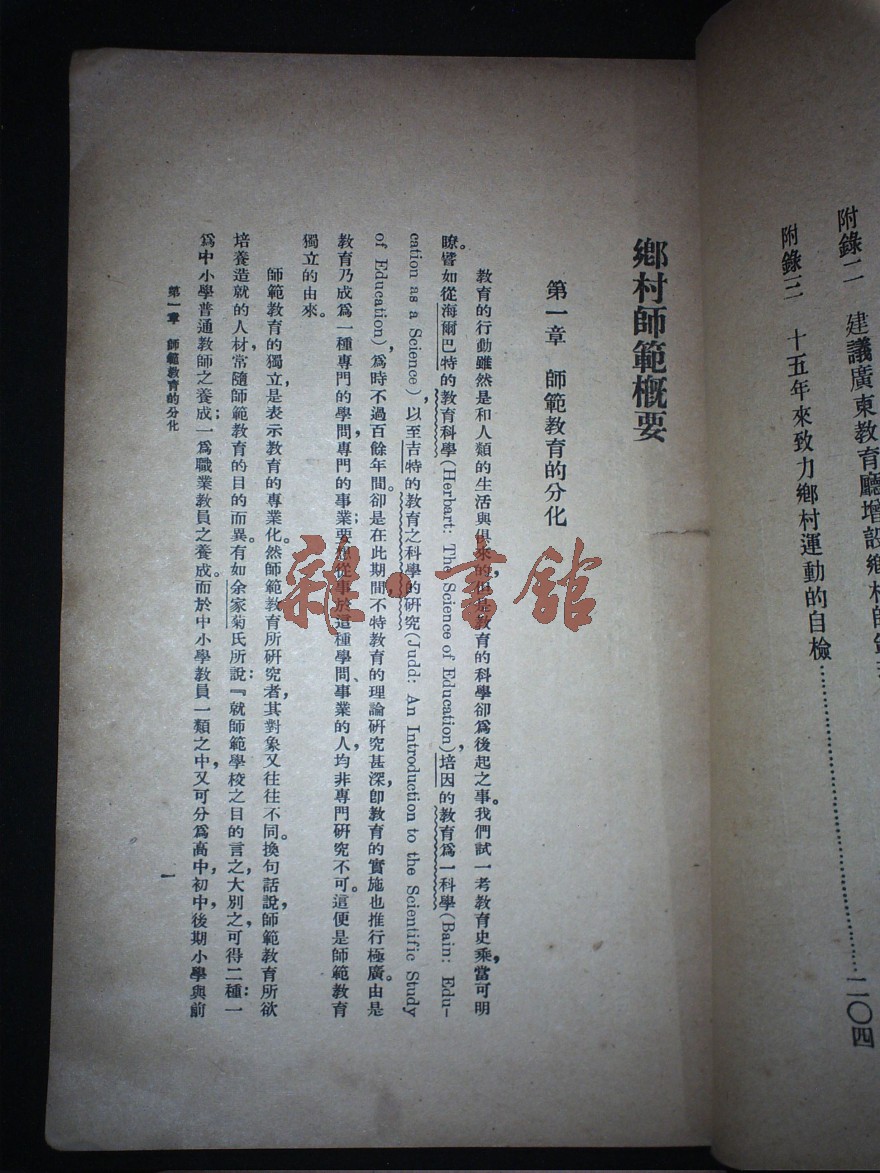 附錄二 建議廣東教育廳增設鄉村師範
附錄三 十五年來致力鄉村運動的自檢……………………二〇四
鄉村師範概要
第一章 師範教育的分化
教育的行動雖然是和人類的生活與俱來的，但是教育的科學卻爲後起之事。我們試一考教育史乘，當可明
瞭。譬如從海爾巴特的教育科學(Herbart: The Science of Education)，培因的教育爲一科學(Bain: Edu-
cation as a Science)，以至吉特的教育之科學的研究(Judd: An Introduction to the Scientific Study
of Education)，爲時不過百餘年間。卻是在此期間，不特教育的理論研究甚深，卽教育的實施也推行極廣。由是
教育乃成爲一種專門的學問，專門的事業；要想從事於這種學問、事業的人，均非專門研究不可。這便是師範教育
獨立的由來。
師範教育的獨立，是表示教育的專業化。然師範教育所研究者，其對象又往往不同。換句話說，師範教育所欲
培養造就的人材，常隨師範教育的目的而異。有如余家菊氏所說：『就師範學校之目的言之，大別之，可得二種：一
爲中小學普通教師之養成；一爲職業教員之養成。而於中小學教員一類之中，又可分爲高中，初中，後期小學與前
第一章 師範教育的分化
一
雜·書館